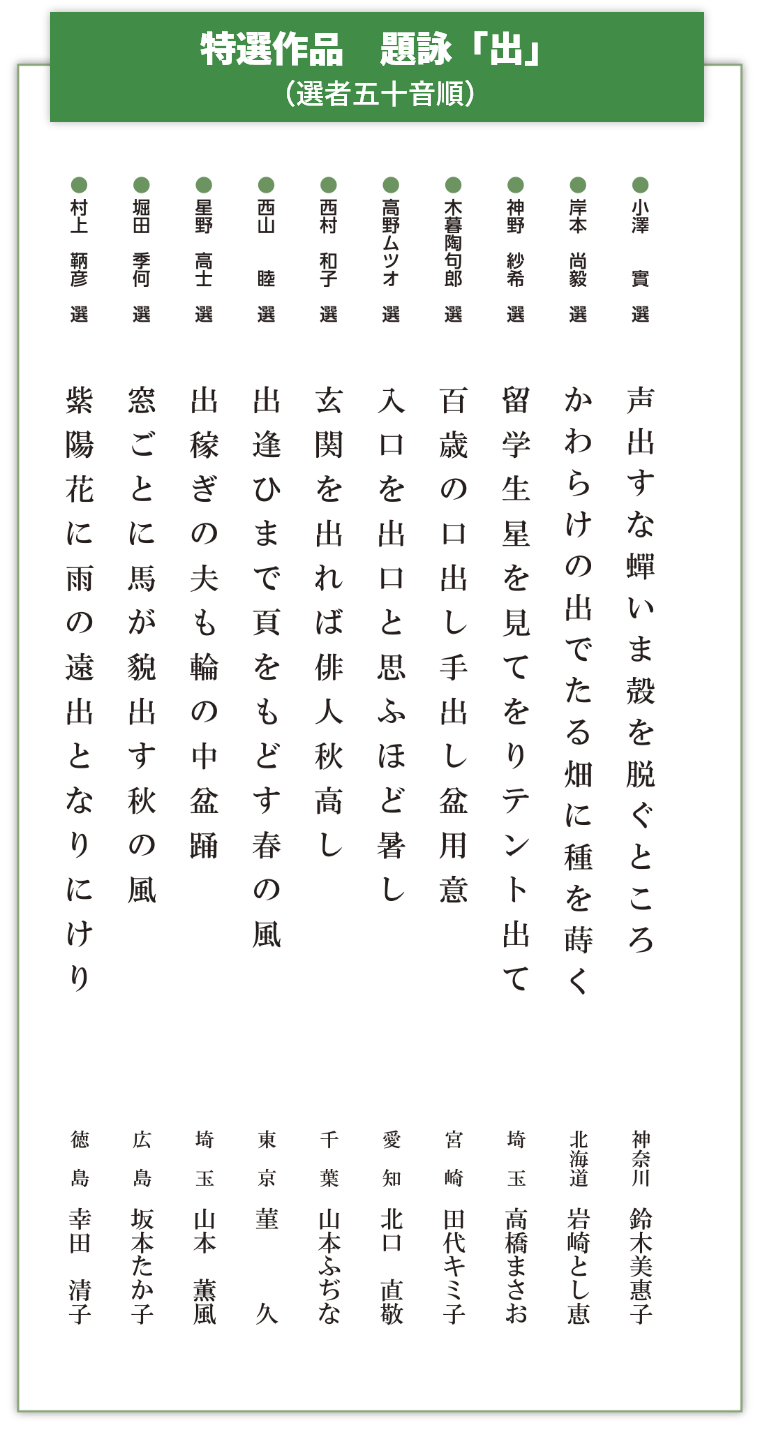 特選作品　題詠「出」
（選者五十音順）
●小澤　實　選　声出すな蟬いま殻を脱ぐところ　神奈川　鈴木美惠子
●岸本　尚毅　選　かわらけの出でたる畑に種を蒔く　北海道　岩崎とし恵
●神野　紗希　選　留学生星を見てをりテント出て　埼玉　高橋まさお
●木暮陶句郎　選　百歳の口出し手出し盆用意　宮崎　田代キミ子
●高野ムツオ　選　入口を出口と思ふほど暑し　愛知　北口　直敬
●西村　和子　選　玄関を出れば俳人秋高し　千葉　山本ふぢな
●西山　睦　選　出逢ひまで頁をもどす春の風　東京　菫　久
●星野　高士　選　出稼ぎの夫も輪の中盆踊　埼玉　山本　薫風
●堀田　季何　選　窓ごとに馬が貌出す秋の風　広島　坂本たか子
●村上　鞆彦　選　紫陽花に雨の遠出となりにけり　徳島　幸田　清子